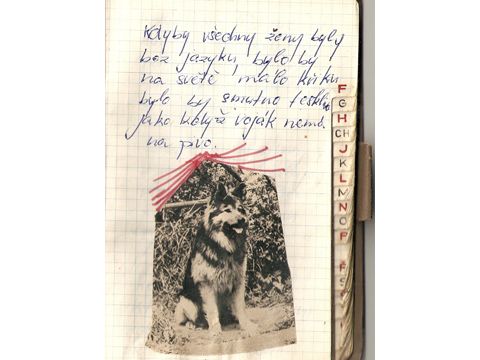 Kdyby všechny ženy byly
bez jazyku, bylo by
na světě málo křiku
bylo by smutno teskno
jako když voják nemá
na pivo.
F
G
H
CH
J
K
L
M
N
O
P
Ř